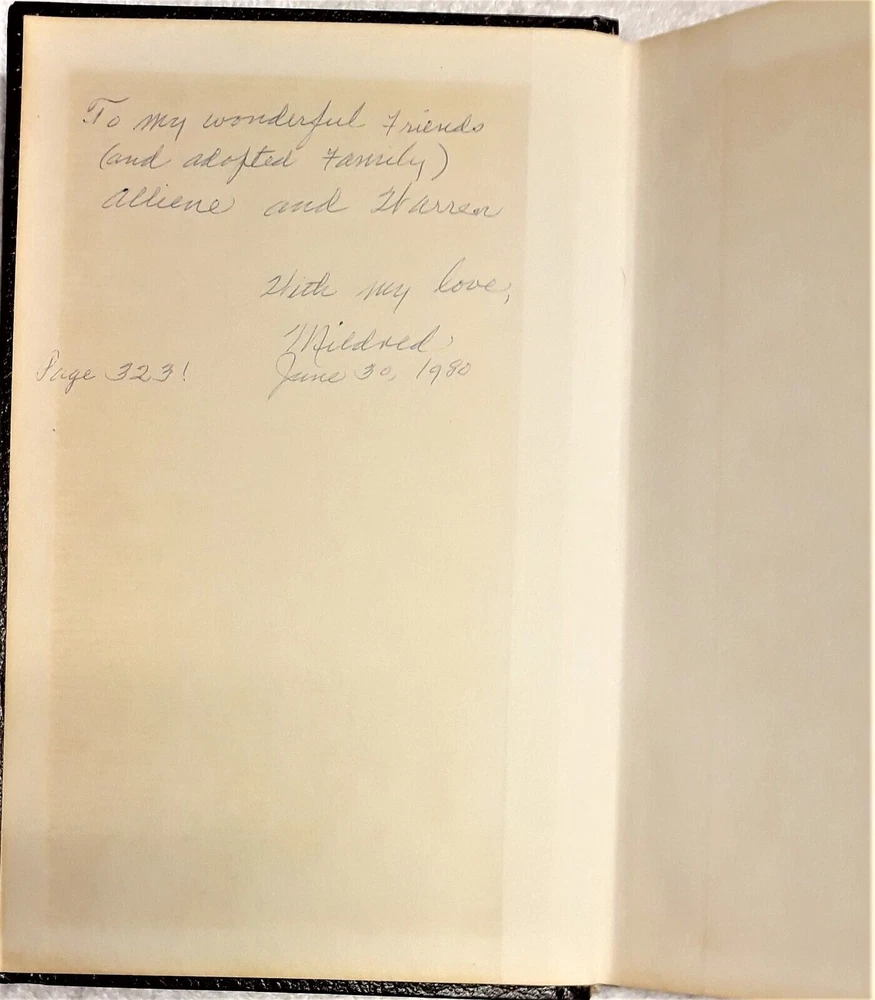 To my wonderful Friends
(and adopted Family)
Alliene and Warren
With my love,
Mildred
Page 323! June 30, 1980